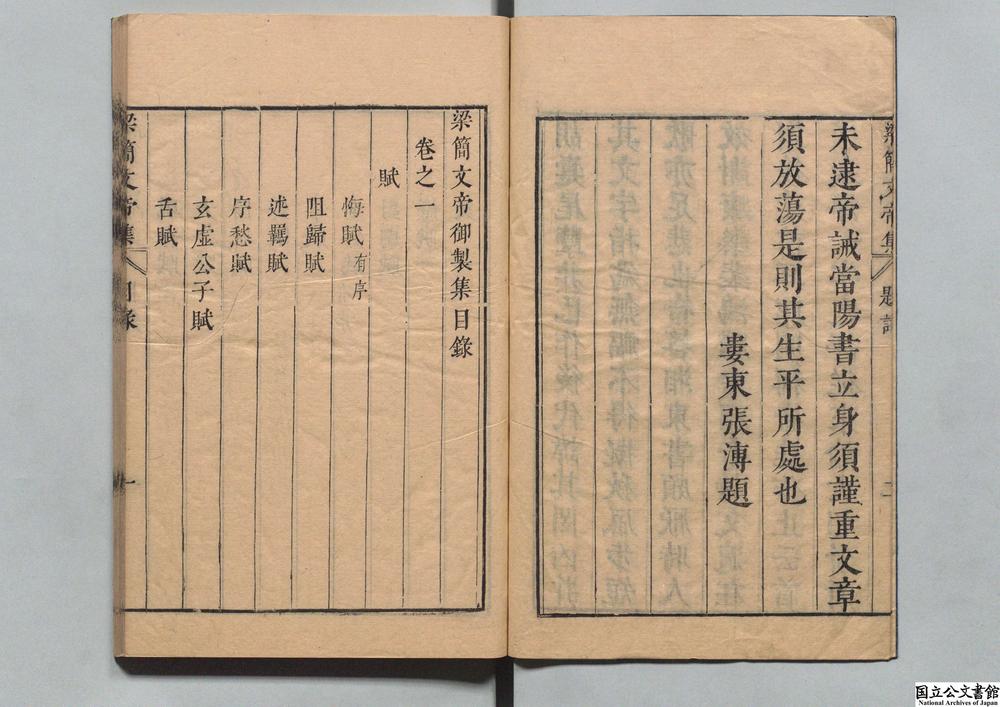 梁簡文帝集 題詞 二
未逮帝誡當陽書立身須謹重文章
須放蕩是則其生平所處也
婁東張溥題
梁簡文帝御製集目錄
卷之一
賦
悔賦有序
阻歸賦
述羈賦
序愁賦
玄虛公子賦
舌賦
梁簡文帝集 目錄 一
国立公文書館
National Archives of Japan